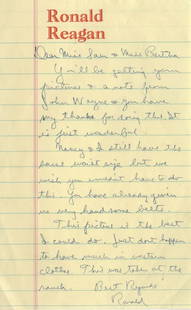 Ronald
Reagan
Dear Miss Sam & Miss Bertha
You'll be getting your
pictures & a note from
John Wayne & you have
my thanks for doing this. It
is just wonderful.
Nancy & I still have the
same waist size but we
wish you wouldn't have to do
this. You have already given
us very handsome belts.
This picture is the best
I could do. Just don't happen
to have much in western
clothes. This was taken at the
ranch. Best Regards
Ronald